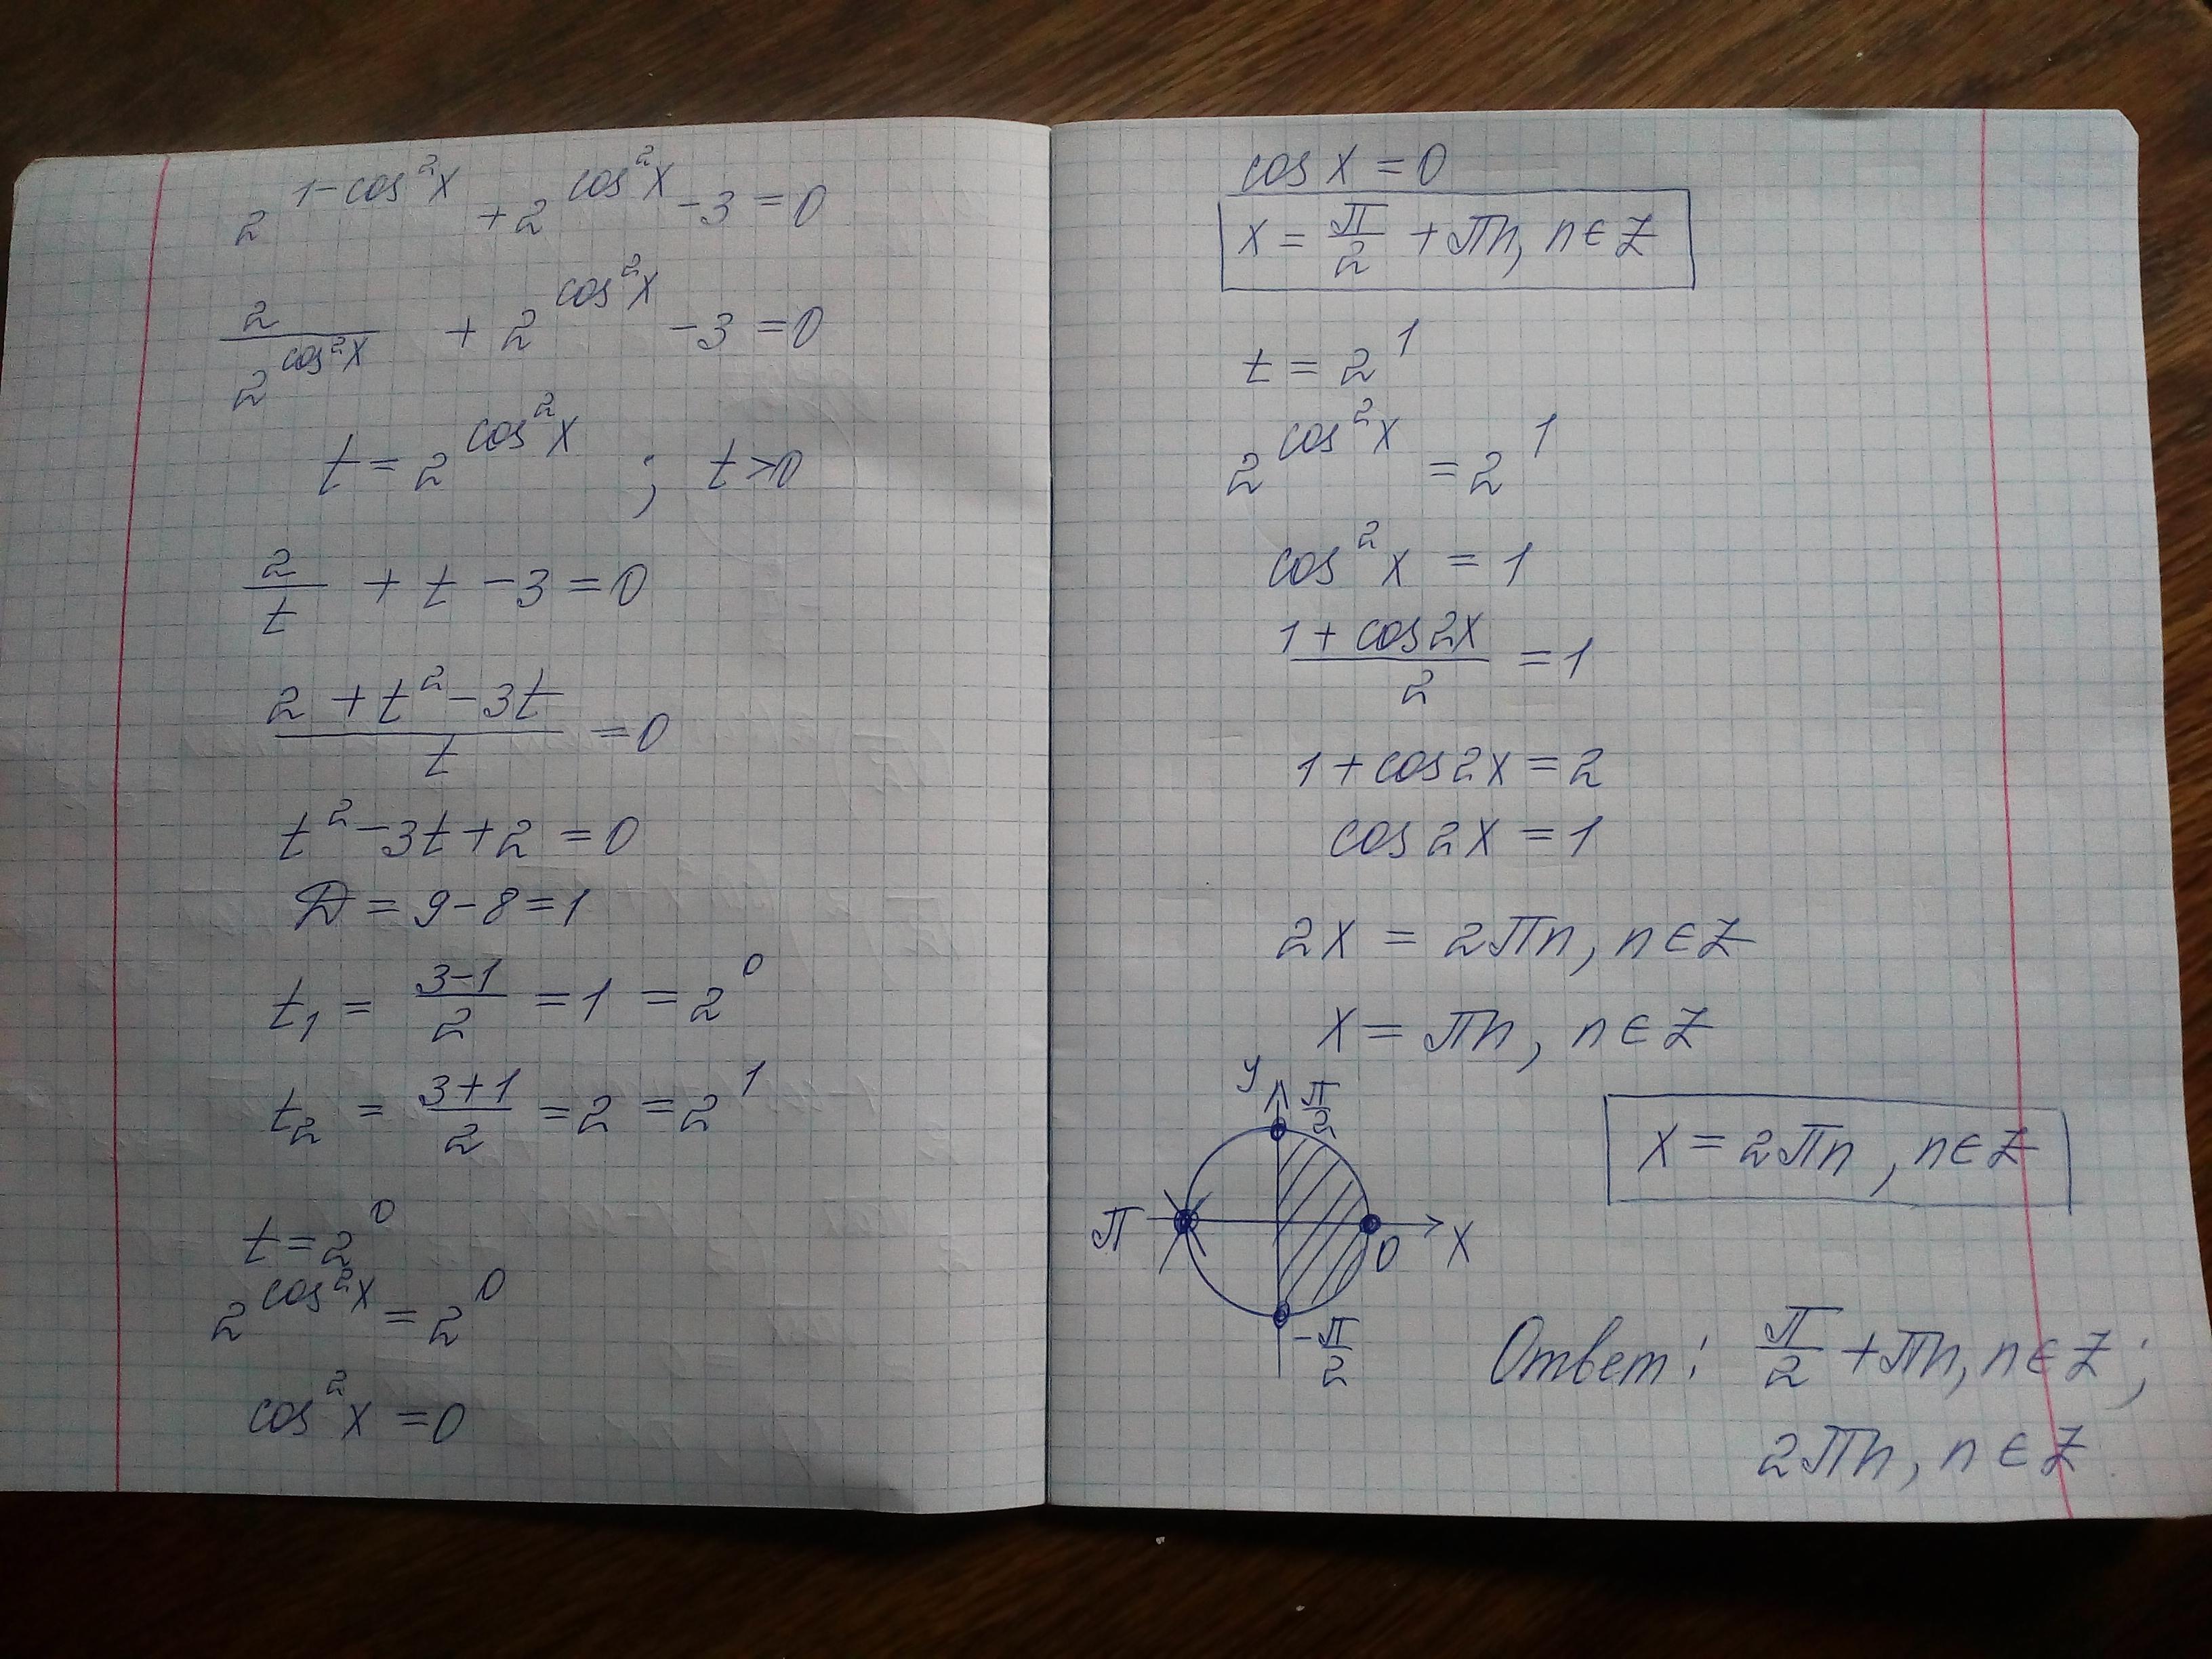 2^(1-cos²x) + 2^(cos²x) - 3 = 0
2/2^(cos²x) + 2^(cos²x) - 3 = 0
t = 2^(cos²x) ; t > 0
2/t + t - 3 = 0
(2 + t² - 3t)/t = 0
t² - 3t + 2 = 0
D = 9 - 8 = 1
t₁ = (3-1)/2 = 1 = 2⁰
t₂ = (3+1)/2 = 2 = 2¹
t = 2⁰
2^(cos²x) = 2⁰
cos²x = 0
cos x = 0
x = π/2 + πn, n ∈ Z
t = 2¹
2^(cos²x) = 2¹
cos²x = 1
(1 + cos2x)/2 = 1
1 + cos2x = 2
cos2x = 1
2x = 2πn, n ∈ Z
x = πn, n ∈ Z
y π/2
x = 2πn, n ∈ Z
π 0 x
-π/2
Ответ: π/2 + πn, n ∈ Z;
2πn, n ∈ Z